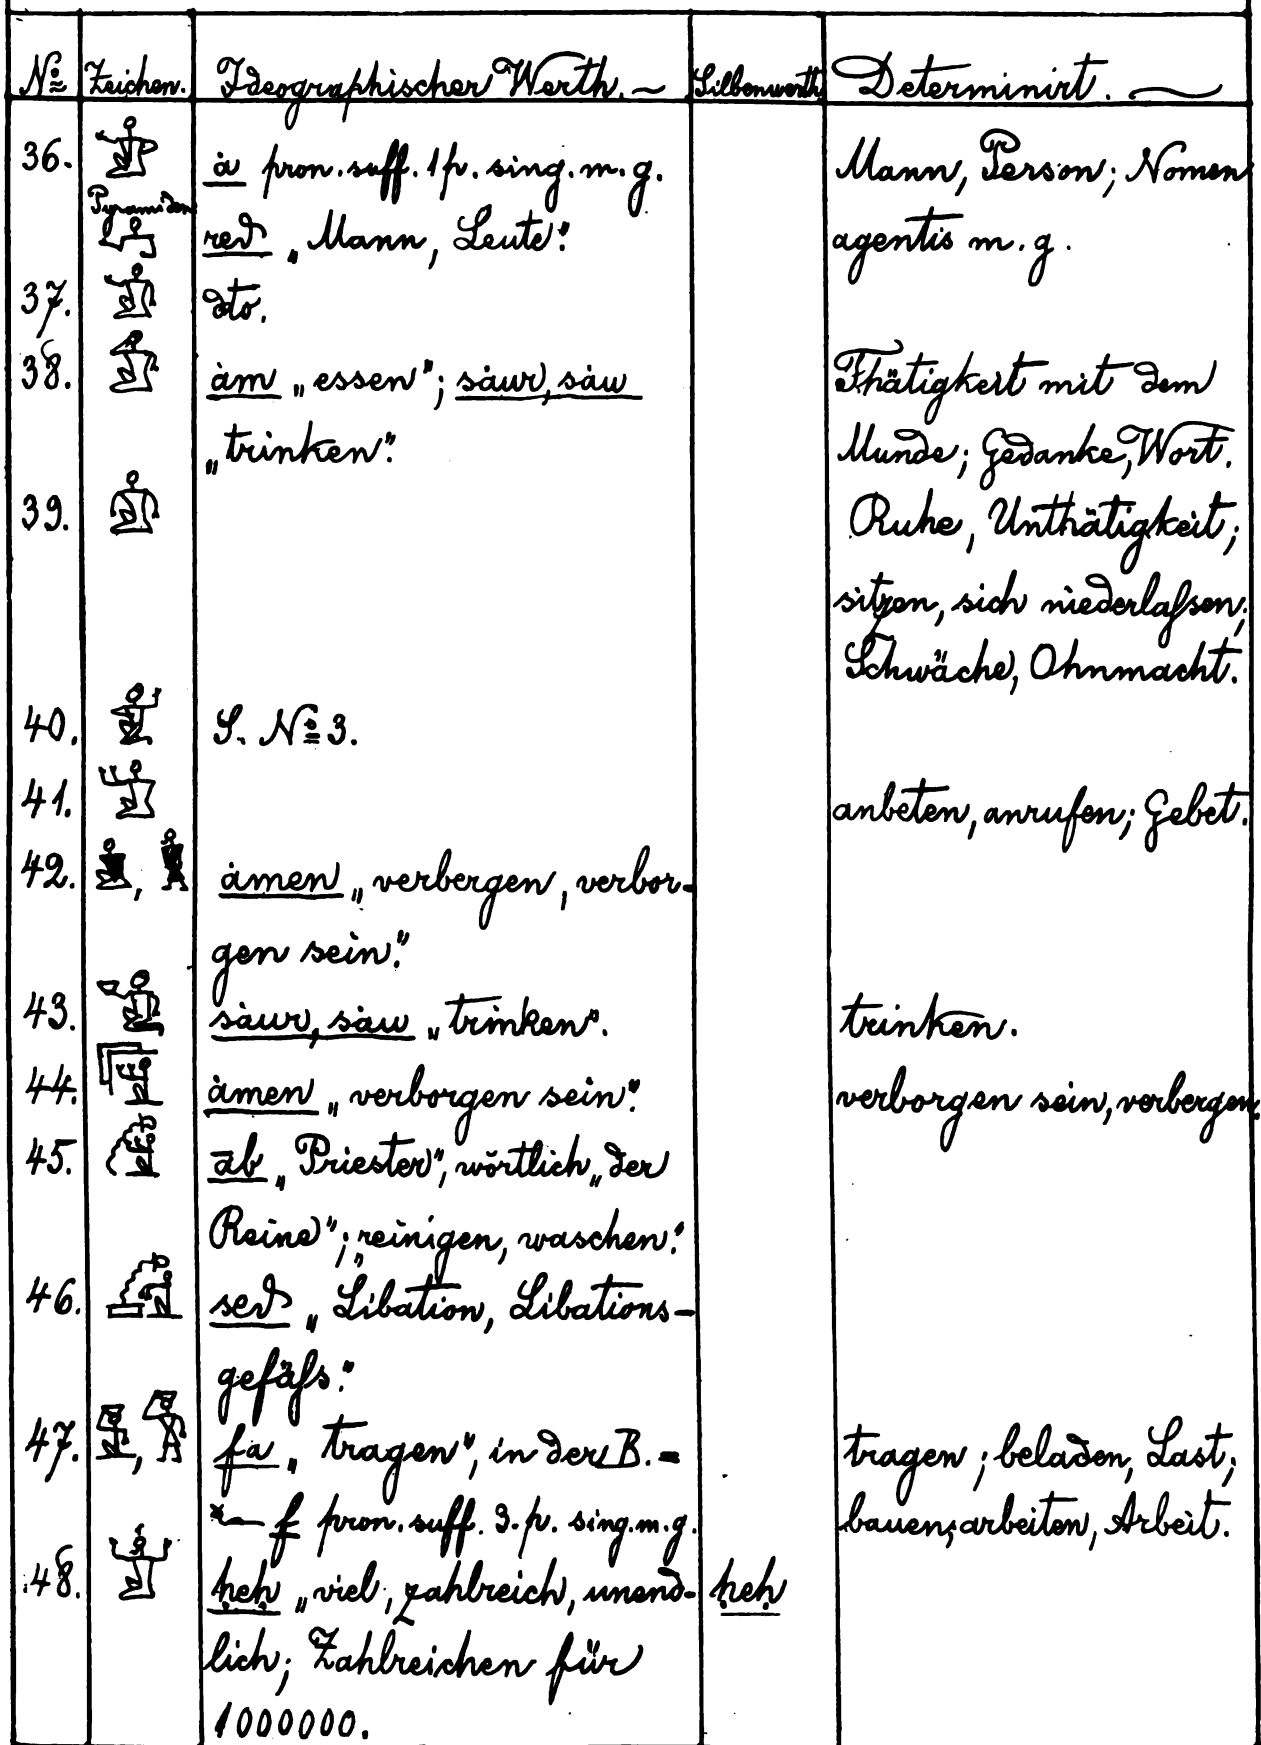 № Zeichen. Ideographischer Werth. Silbenwerth Determinirt.
36. ȧ pron. suff. 1 p. sing. m. g. Mann, Person; Nomen
Pyramiden
reḏ „Mann, Leute". agentis m. g.
37. dto.
38. ȧm „essen"; sȧur, sȧu Thätigkeit mit dem
„trinken". Munde; Gedanke, Wort.
39. Ruhe, Unthätigkeit;
sitzen, sich niederlaſsen;
Schwäche, Ohnmacht.
40. S. № 3.
41. anbeten, anrufen; Gebet.
42. , ȧmen „verbergen, verbor-
gen sein".
43. sȧur, sȧu „trinken". trinken.
44. ȧmen „verborgen sein". verborgen sein, verbergen.
45. āb „Priester", wörtlich „der
Reine"; „reinigen, waschen".
46. sed „Libation, Libations-
gefäſs".
47. , fa „tragen", in der B. - tragen; beladen, Last;
f pron. suff. 3. p. sing. m. g. bauen, arbeiten, Arbeit.
48. ḥeḥ „viel, zahlreich, unend- ḥeḥ
lich; Zahlzeichen für
1000000.